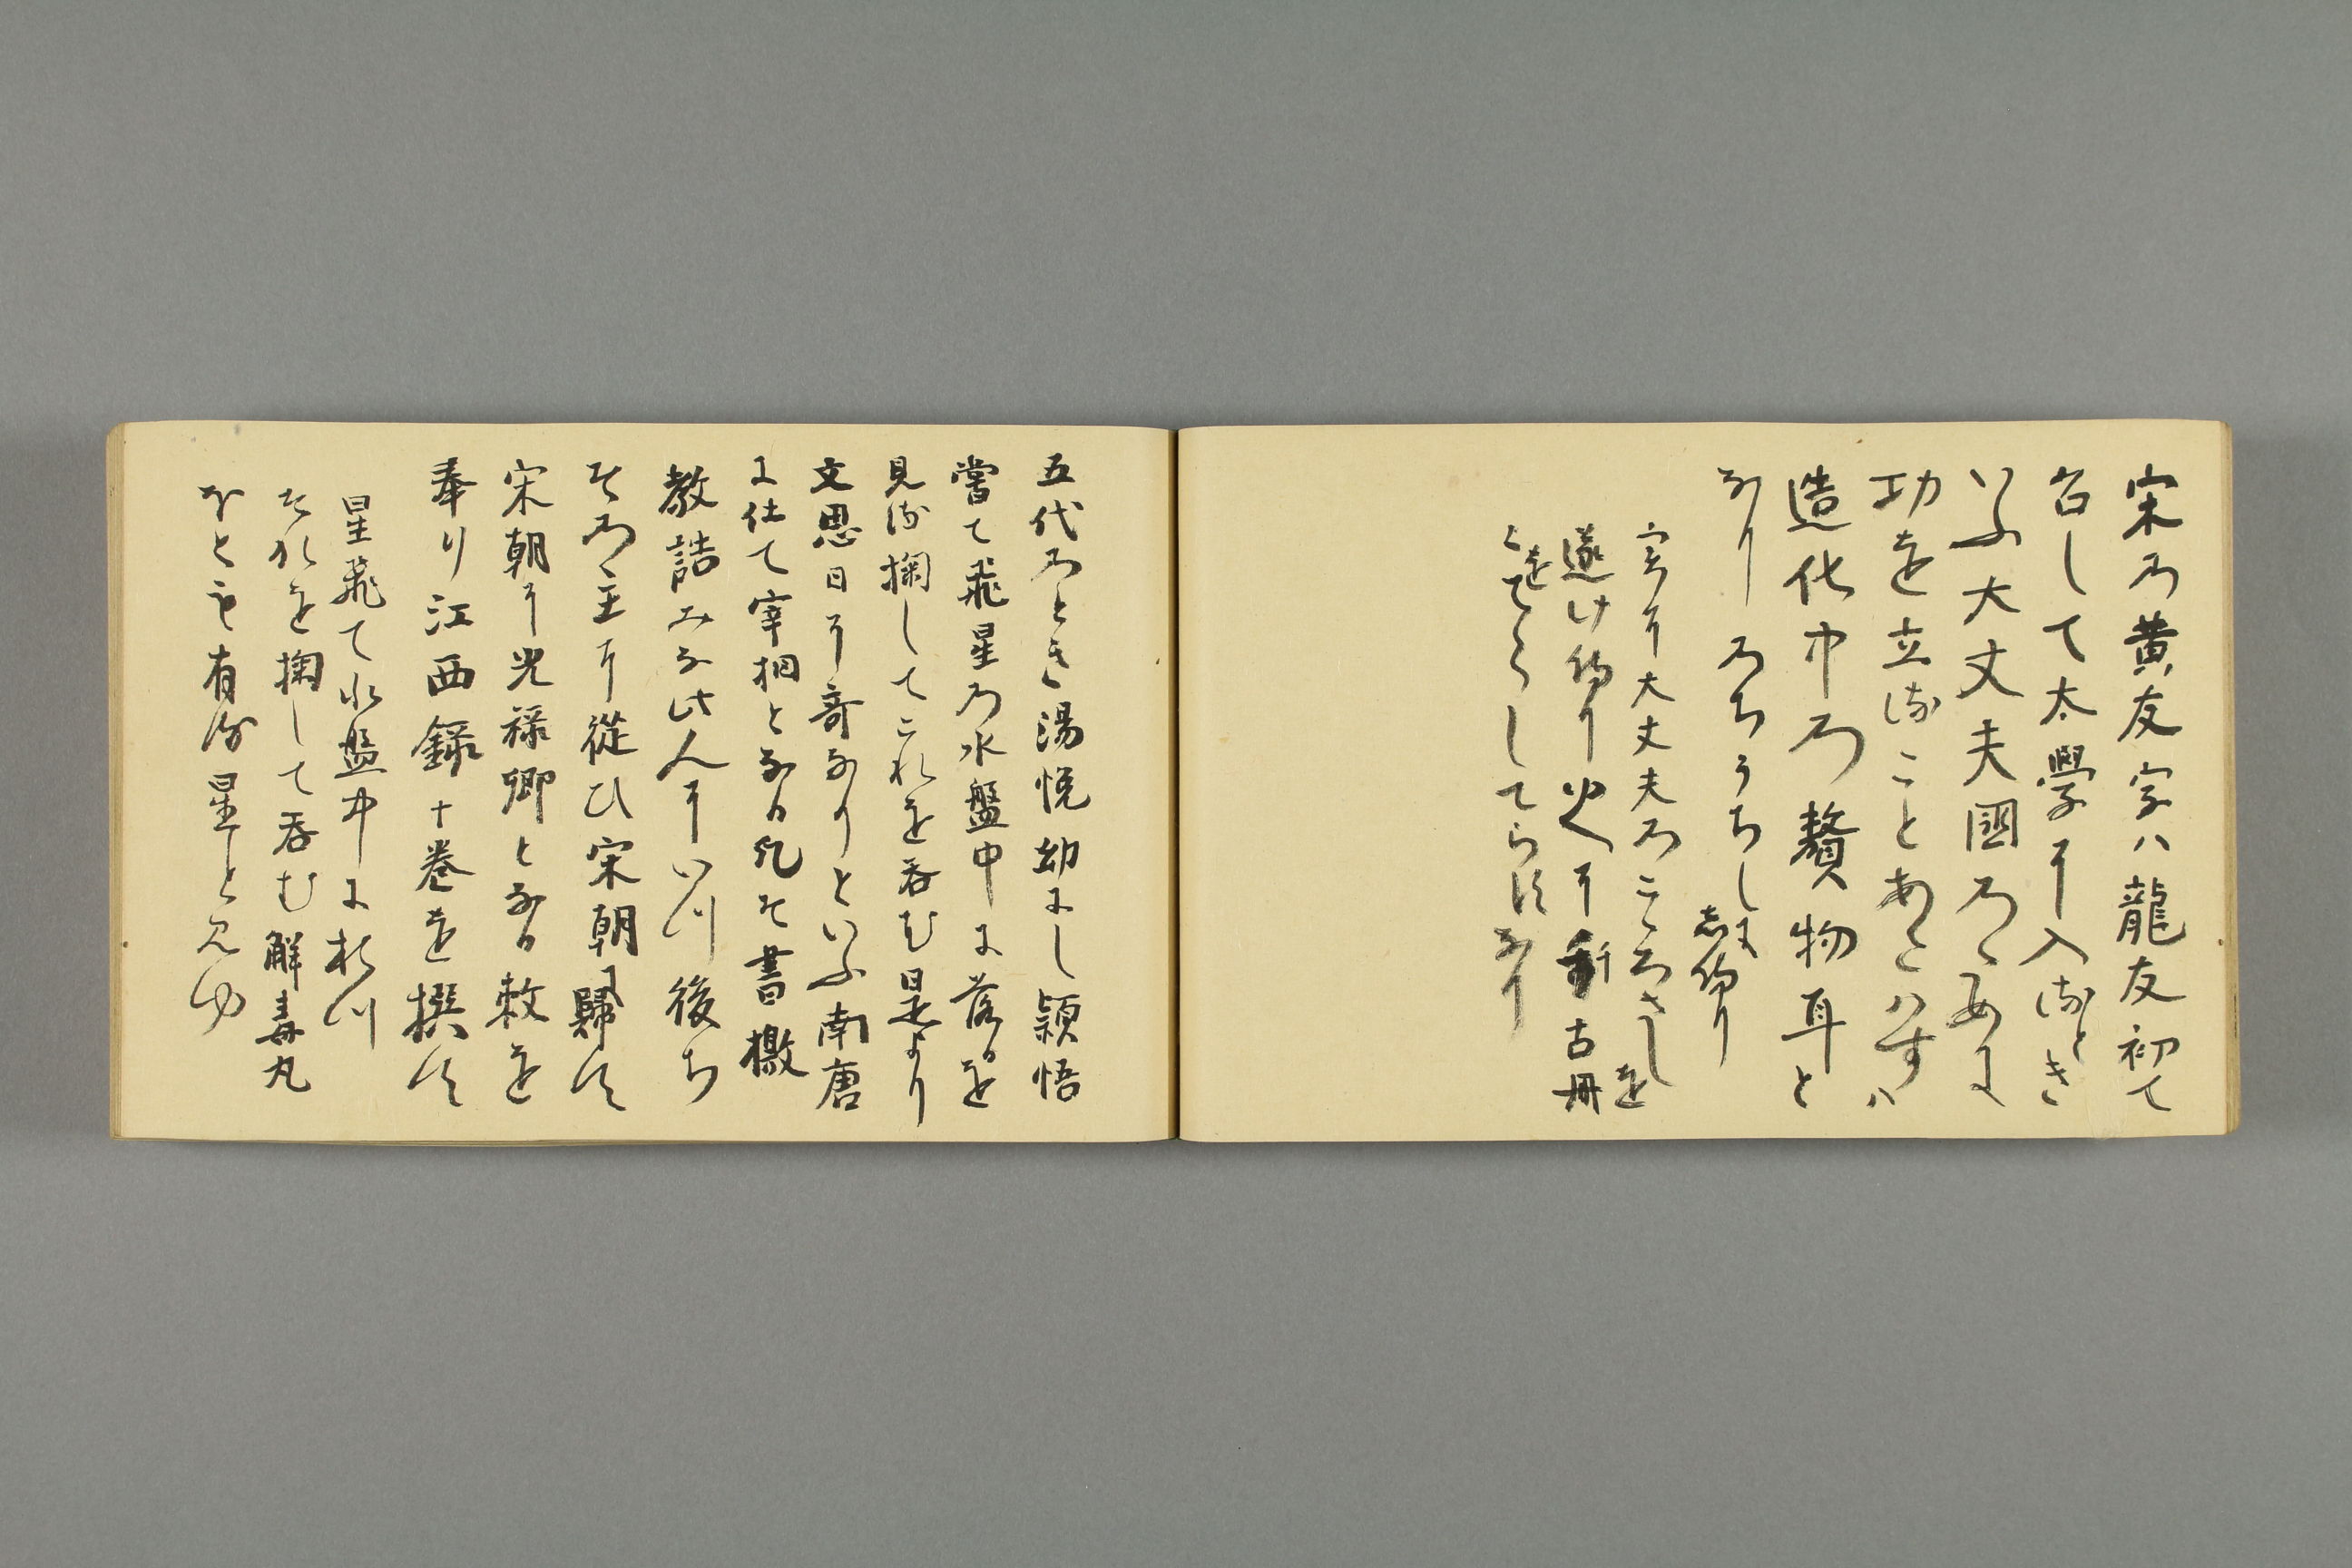 宋の黄友字ハ龍友初て
召して太學に入るとき
いふ大丈夫國のゝために
功を立ることあたハずハ
造化中の贅物耳と
なり のちうちしに
志得り
実に大丈夫のこゝろさしを
遂け得り 史に
古冊
てらしてらす
なり
五代のとき湯悦幼にし頴悟
嘗て飛星の水盤中に落るを
見る掬してこれを呑む是より
文思日に奇なりといふ南唐
に仕て宰相となる凡そ書檄
教誥みな此人にいつ後ち
その主に從ひ宋朝に歸す
宋朝に光禄卿となる敕を
奉り江西録十巻を撰す
星飛て水盤中におつ
それを掬して呑む解毒丸
ほとも有る星と見ゆ